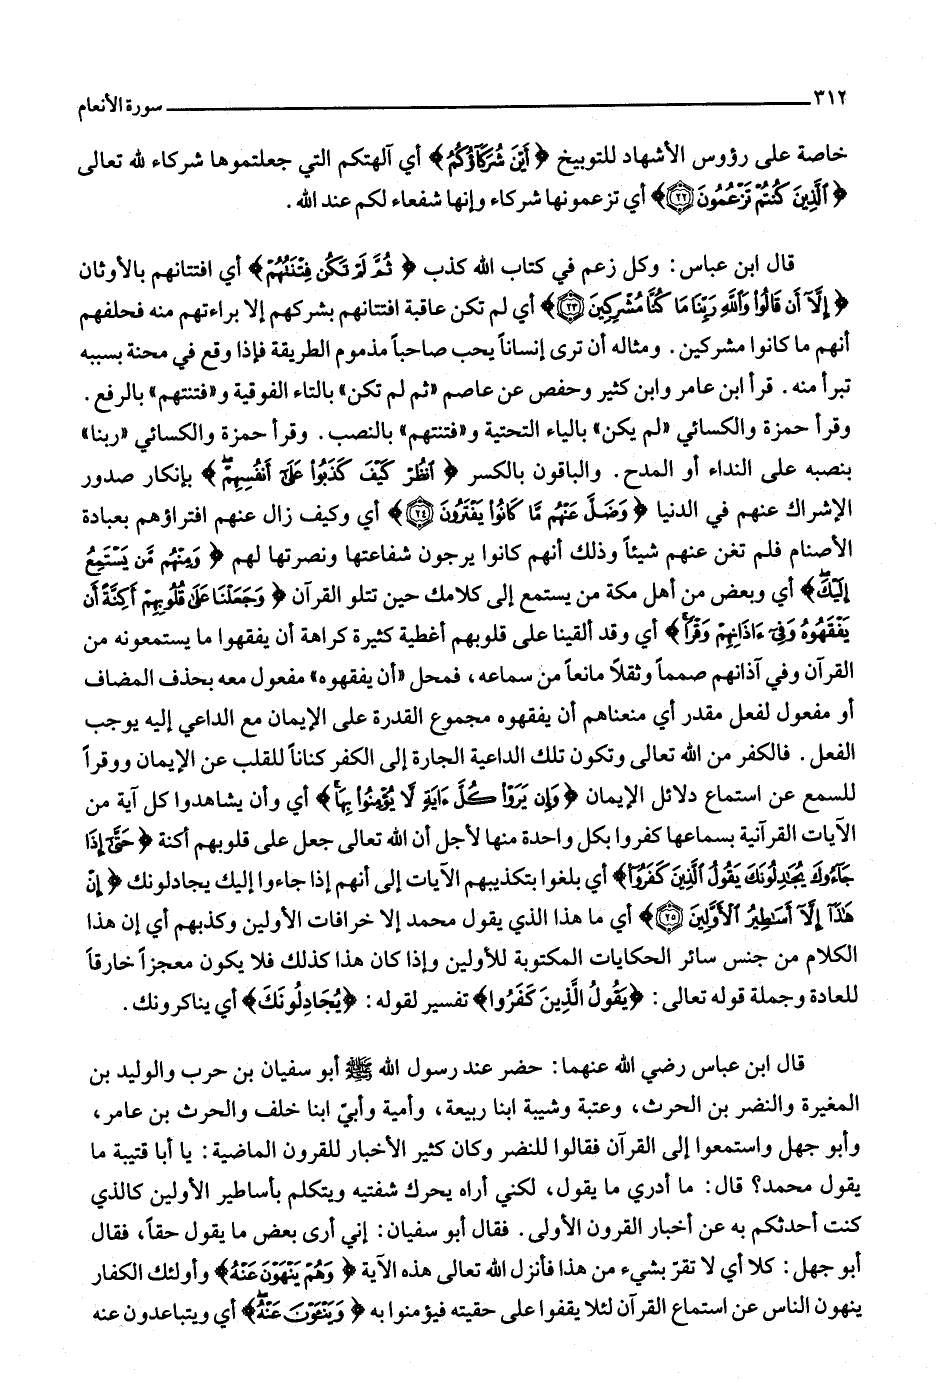 ٣١٢ سورة الأنعام
خاصة على رؤوس الأشهاد للتوبيخ ﴿ أَيْنَ شُرَكَآؤُكُمُ ﴾ أي آلهتكم التي جعلتموها شركاء لله تعالى
﴿ ٱلَّذِينَ كُنتُمْ تَزْعُمُونَ ٢٢ ﴾ أي تزعمونها شركاء وإنها شفعاء لكم عند الله .
قال ابن عباس : وكل زعم في كتاب الله كذب ﴿ ثُمَّ لَمْ تَكُن فِتْنَتُهُمْ ﴾ أي افتتانهم بالأوثان
﴿ إِلَّآ أَن قَالُوا۟ وَٱللَّهِ رَبِّنَا مَا كُنَّا مُشْرِكِينَ ٢٣ ﴾ أي لم تكن عاقبة افتتانهم بشركهم إلا براءتهم منه فحلفهم
أنهم ما كانوا مشركين . ومثاله أن ترى إنساناً يحب صاحباً مذموم الطريقة فإذا وقع في محنة بسببه
تبرأ منه . قرأ ابن عامر وابن كثير وحفص عن عاصم «ثم لم تكن» بالتاء الفوقية و«فتنتهم» بالرفع .
وقرأ حمزة والكسائي «لم يكن» بالياء التحتية و«فتنتهم» بالنصب . وقرأ حمزة والكسائي «ربنا»
بنصبه على النداء أو المدح . والباقون بالكسر ﴿ ٱنظُرْ كَيْفَ كَذَبُوا۟ عَلَىٰٓ أَنفُسِهِمْ ﴾ بإنكار صدور
الإشراك عنهم في الدنيا ﴿ وَضَلَّ عَنْهُم مَّا كَانُوا۟ يَفْتَرُونَ ٢٤ ﴾ أي وكيف زال عنهم افتراؤهم بعبادة
الأصنام فلم تغن عنهم شيئاً وذلك أنهم كانوا يرجون شفاعتها ونصرتها لهم ﴿ وَمِنْهُم مَّن يَسْتَمِعُ
إِلَيْكَ ﴾ أي وبعض من أهل مكة من يستمع إلى كلامك حين تتلو القرآن ﴿ وَجَعَلْنَا عَلَىٰ قُلُوبِهِمْ أَكِنَّةً أَن
يَفْقَهُوهُ وَفِىٓ ءَاذَانِهِمْ وَقْرًا ﴾ أي وقد ألقينا على قلوبهم أغطية كثيرة كراهة أن يفقهوا ما يستمعونه من
القرآن وفي آذانهم صمماً وثقلاً مانعاً من سماعه ، فمحل «أن يفقهوه» مفعول معه بحذف المضاف
أو مفعول لفعل مقدر أي منعناهم أن يفقهوه مجموع القدرة على الإيمان مع الداعي إليه يوجب
الفعل . فالكفر من الله تعالى وتكون تلك الداعية الجارة إلى الكفر كناناً للقلب عن الإيمان ووقراً
للسمع عن استماع دلائل الإيمان ﴿ وَإِن يَرَوْا۟ كُلَّ ءَايَةٍ لَّا يُؤْمِنُوا۟ بِهَا ﴾ أي وأن يشاهدوا كل آية من
الآيات القرآنية بسماعها كفروا بكل واحدة منها لأجل أن الله تعالى جعل على قلوبهم أكنة ﴿ حَتَّىٰٓ إِذَا
جَآءُوكَ يُجَٰدِلُونَكَ يَقُولُ ٱلَّذِينَ كَفَرُوٓا۟ ﴾ أي بلغوا بتكذيبهم الآيات إلى أنهم إذا جاءوا إليك يجادلونك ﴿ إِنْ
هَٰذَآ إِلَّآ أَسَٰطِيرُ ٱلْأَوَّلِينَ ٢٥ ﴾ أي ما هذا الذي يقول محمد إلا خرافات الأولين وكذبهم أي إن هذا
الكلام من جنس سائر الحكايات المكتوبة للأولين وإذا كان هذا كذلك فلا يكون معجزاً خارقاً
للعادة وجملة قوله تعالى : ﴿يَقُولُ الَّذِينَ كَفَرُوا﴾ تفسير لقوله : ﴿يُجَادِلُونَكَ﴾ أي يناكرونك .
قال ابن عباس رضي الله عنهما : حضر عند رسول الله ﷺ أبو سفيان بن حرب والوليد بن
المغيرة والنضر بن الحرث ، وعتبة وشيبة ابنا ربيعة ، وأمية وأبيّ ابنا خلف والحرث بن عامر ،
وأبو جهل واستمعوا إلى القرآن فقالوا للنضر وكان كثير الأخبار للقرون الماضية : يا أبا قتيبة ما
يقول محمد؟ قال : ما أدري ما يقول ، لكني أراه يحرك شفتيه ويتكلم بأساطير الأولين كالذي
كنت أحدثكم به عن أخبار القرون الأولى . فقال أبو سفيان : إني أرى بعض ما يقول حقاً ، فقال
أبو جهل : كلا أي لا تقرّ بشيء من هذا فأنزل الله تعالى هذه الآية ﴿ وَهُمْ يَنْهَوْنَ عَنْهُ ﴾ وأولئك الكفار
ينهون الناس عن استماع القرآن لئلا يقفوا على حقيته فيؤمنوا به ﴿ وَيَنْـَٔوْنَ عَنْهُ ﴾ أي ويتباعدون عنه